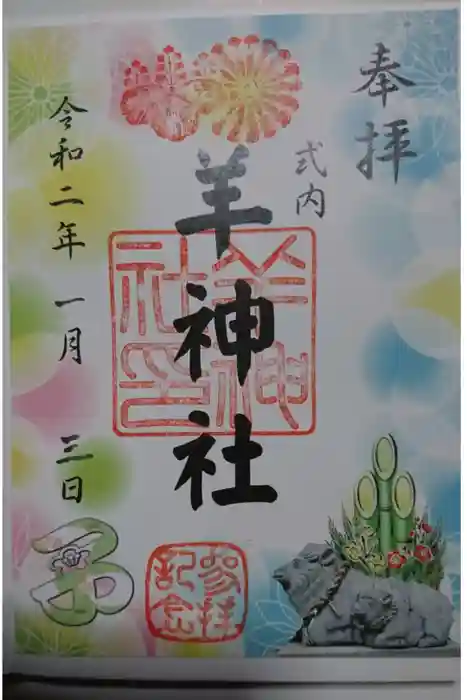 奉拝
式内
羊神社
羊神社印
令和二年 一月 三日
子
参拝記念